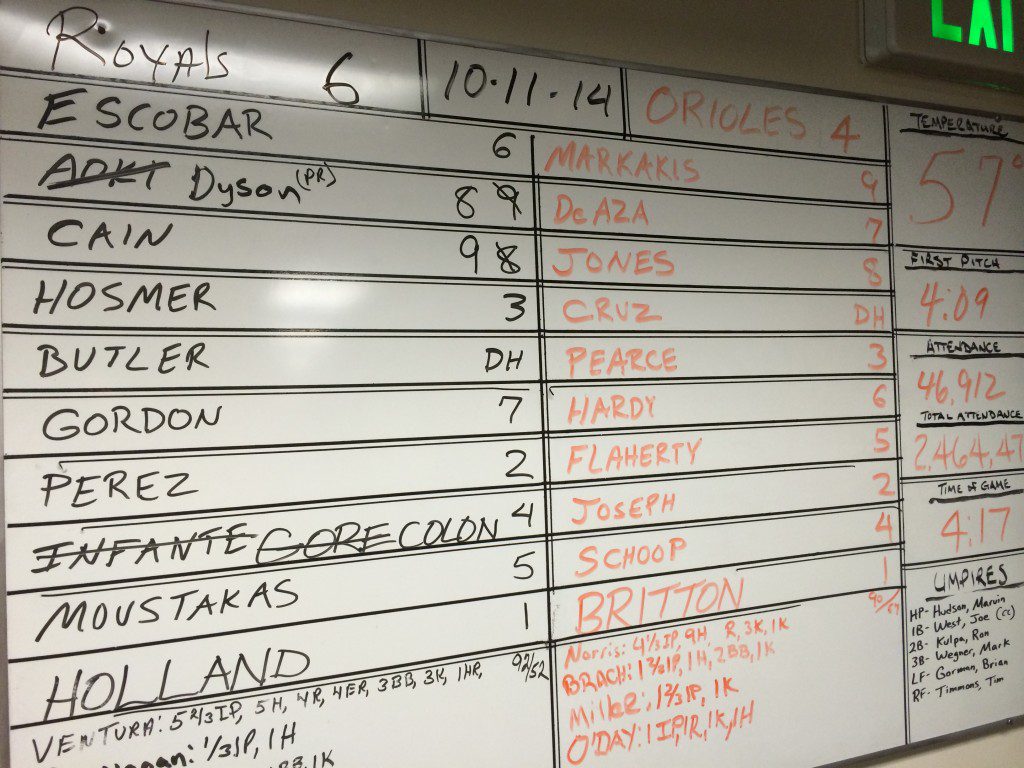 EXI
Royals 6
10·11·14
ORIOLES 4
ESCOBAR 6
ADKI Dyson (PR) 8 9
CAIN 9 8
HOSMER 3
BUTLER DH
GORDON 7
PEREZ 2
INFANTE GORE COLON 4
MOUSTAKAS 5
HOLLAND 1
92/52
VENTURA: 5 2/3 IP, 5H, 4R, 4ER, 3BB, 3K, 1HR,
1/3 IP, 1H
BB, 1K
MARKAKIS 9
De AZA 7
JONES 8
CRUZ DH
PEARCE 3
HARDY 6
FLAHERTY 5
JOSEPH 2
SCHOOP 4
BRITTON 1
Norris: 4 1/3 IP, 9H, R, 3K, 1K
BRACH: 1 2/3 IP, 1H, 2BB, 1K
1 2/3 IP, 1K
O'DAY: 1 IP, 1R, 1K, 1H
TEMPERATURE
57°
FIRST PITCH
4:09
ATTENDANCE
46,912
TOTAL ATTENDANCE
2,464,47
TIME OF GAME
4:17
UMPIRES
HP- Hudson, Marvin
1B- West, Joe (cc)
2B- Kulpa, Ron
3B- Wegner, Mark
LF- Gorman, Brian
RF- Timmons, Tim